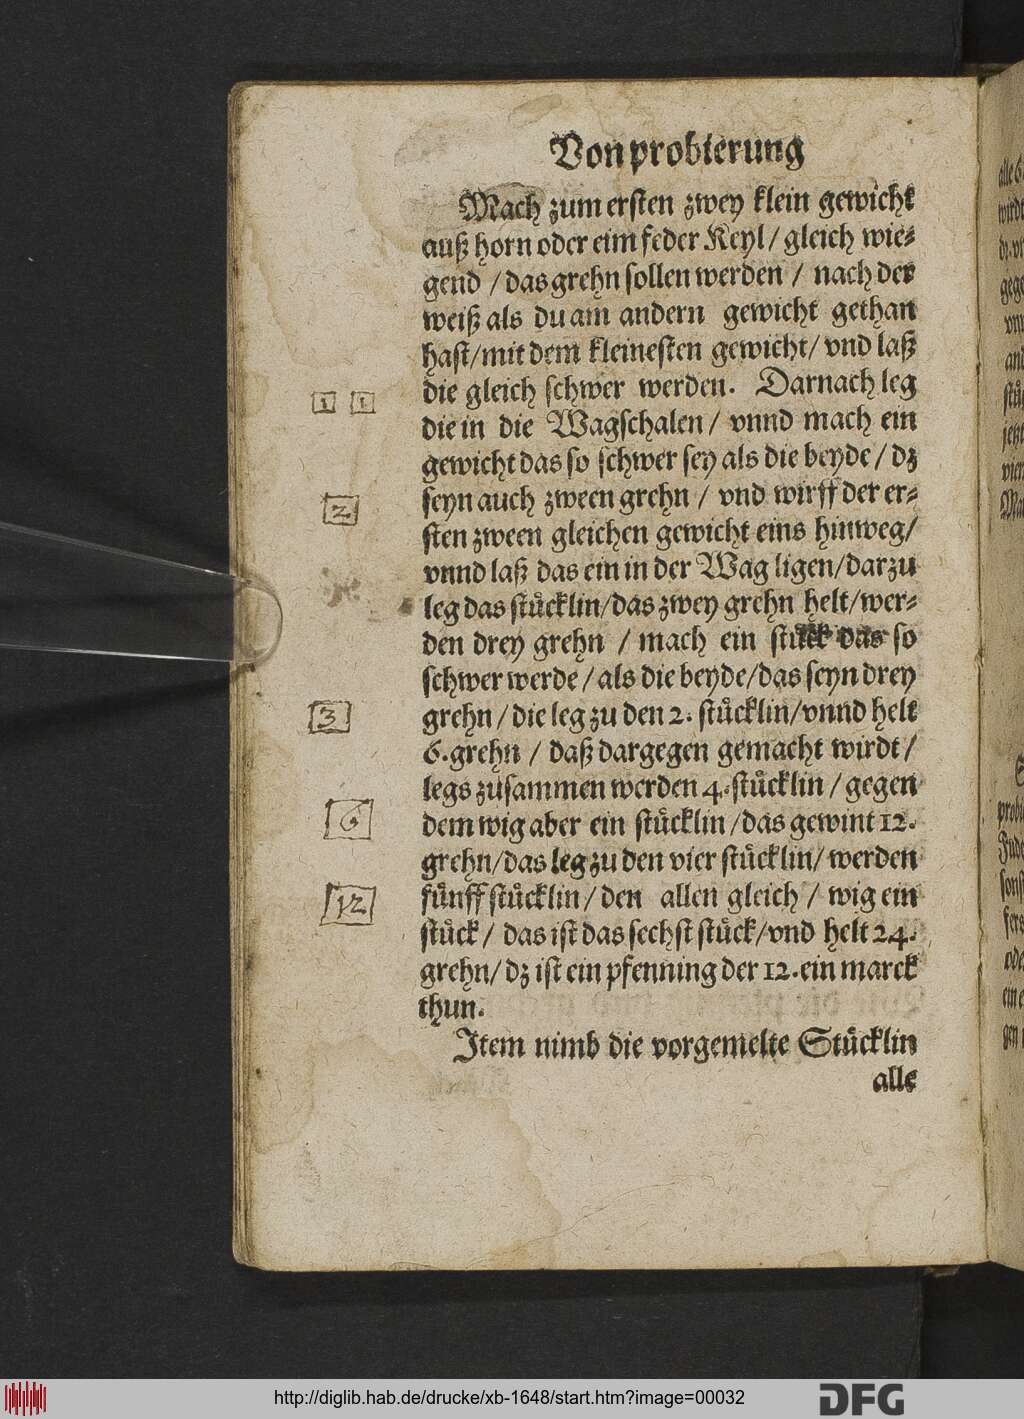 Von probierung
Mach zum ersten zwey klein gewicht
auß horn oder eim feder Keyl / gleich wie⸗
gend / das grehn sollen werden / nach der
weiß als du am andern gewicht gethan
hast / mit dem kleinesten gewicht / vnd laß
die gleich schwer werden. Darnach leg
1 1
die in die Wagschalen / vnnd mach ein
gewicht das so schwer sey als die beyde / dz
seyn auch zween grehn / vnd wirff der er⸗
2
sten zween gleichen gewicht eins hinweg /
vnnd laß das ein in der Wag ligen / darzu
leg das stuͤcklin / das zwey grehn helt / wer⸗
den drey grehn / mach ein stuͤck das so
schwer werde / als die beyde / das seyn drey
grehn / die leg zu den 2. stuͤcklin / vnnd helt
3
6. grehn / daß dargegen gemacht wirdt /
legs zusammen werden 4. stuͤcklin / gegen
dem wig aber ein stuͤcklin / das gewint 12.
6
grehn / das leg zu den vier stuͤcklin / werden
fuͤnff stuͤcklin / den allen gleich / wig ein
12
stuͤck / das ist das sechst stuͤck / vnd helt 24.
grehn / dz ist ein pfenning der 12. ein marck
thun.
Item nimb die vorgemelte Stuͤcklin
alle
http://diglib.hab.de/drucke/xb-1648/start.htm?image=00032
DFG